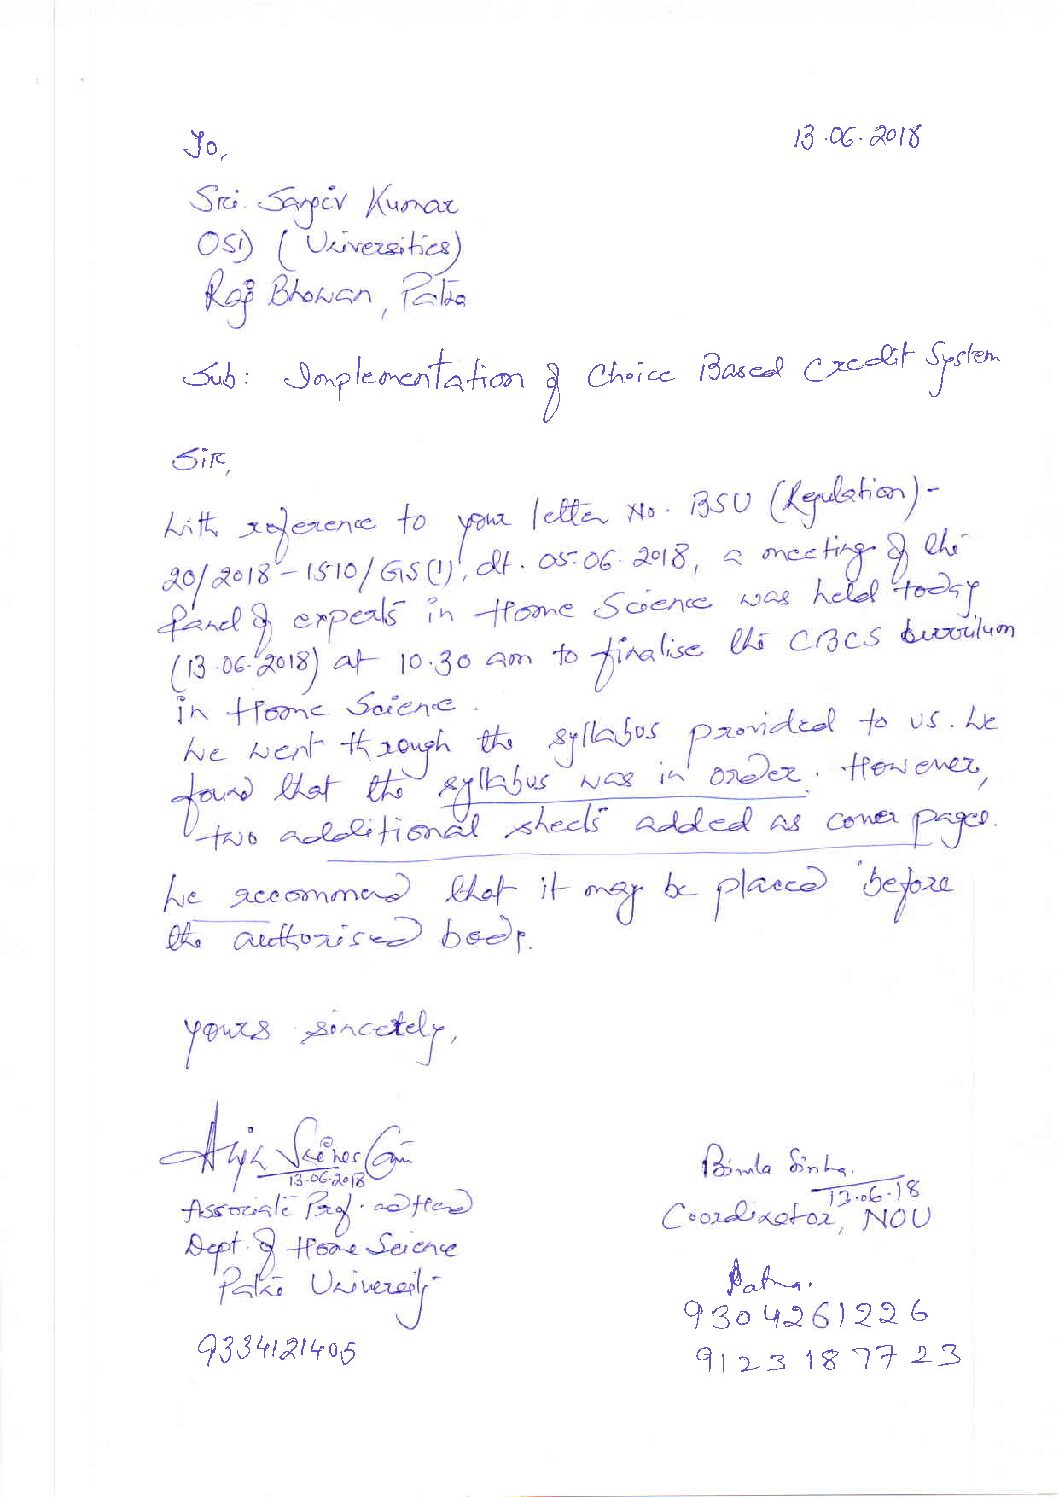 13.06.2018
To,
Sri. Sanjiv Kumar
OSD (Universities)
Raj Bhawan, Patna
Sub: Implementation of Choice Based Credit System
Sir,
With reference to your letter No. BSU (Regulation)-
20/2018-1510/GS(I), dt. 05.06.2018, a meeting of the
Panel of experts in Home Science was held today
(13.06.2018) at 10.30 am to finalise the CBCS curriculum
in Home Science.
We went through the syllabus provided to us. We
found that the syllabus was in order. However,
two additional sheets added as cover pages.
We recommend that it may be placed before
the authorised body.
Yours sincerely,
13.06.2018
Associate Prof. and Head
Dept. of Home Science
Patna University
9334121405
Bimla Sinha.
13.06.18
Coordinator, NOU
Patna.
9304261226
9123187723